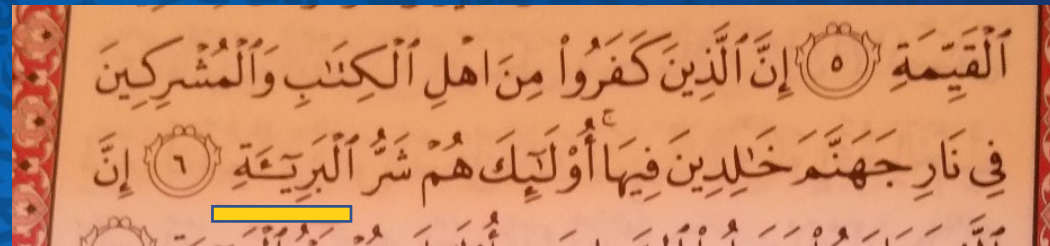 اَ۬لْقَيِّمَةِ ٥ إِنَّ اَ۬لذِينَ كَفَرُواْ مِنَ اَهْلِ اِ۬لْكِتَٰبِ وَالْمُشْرِكِينَ
فِي نَارِ جَهَنَّمَ خَٰلِدِينَ فِيهَاۖ أُوْلَٰٓئِكَ هُمْ شَرُّ اُ۬لْبَرِيٓـَٔةِ ٦ إِنَّ